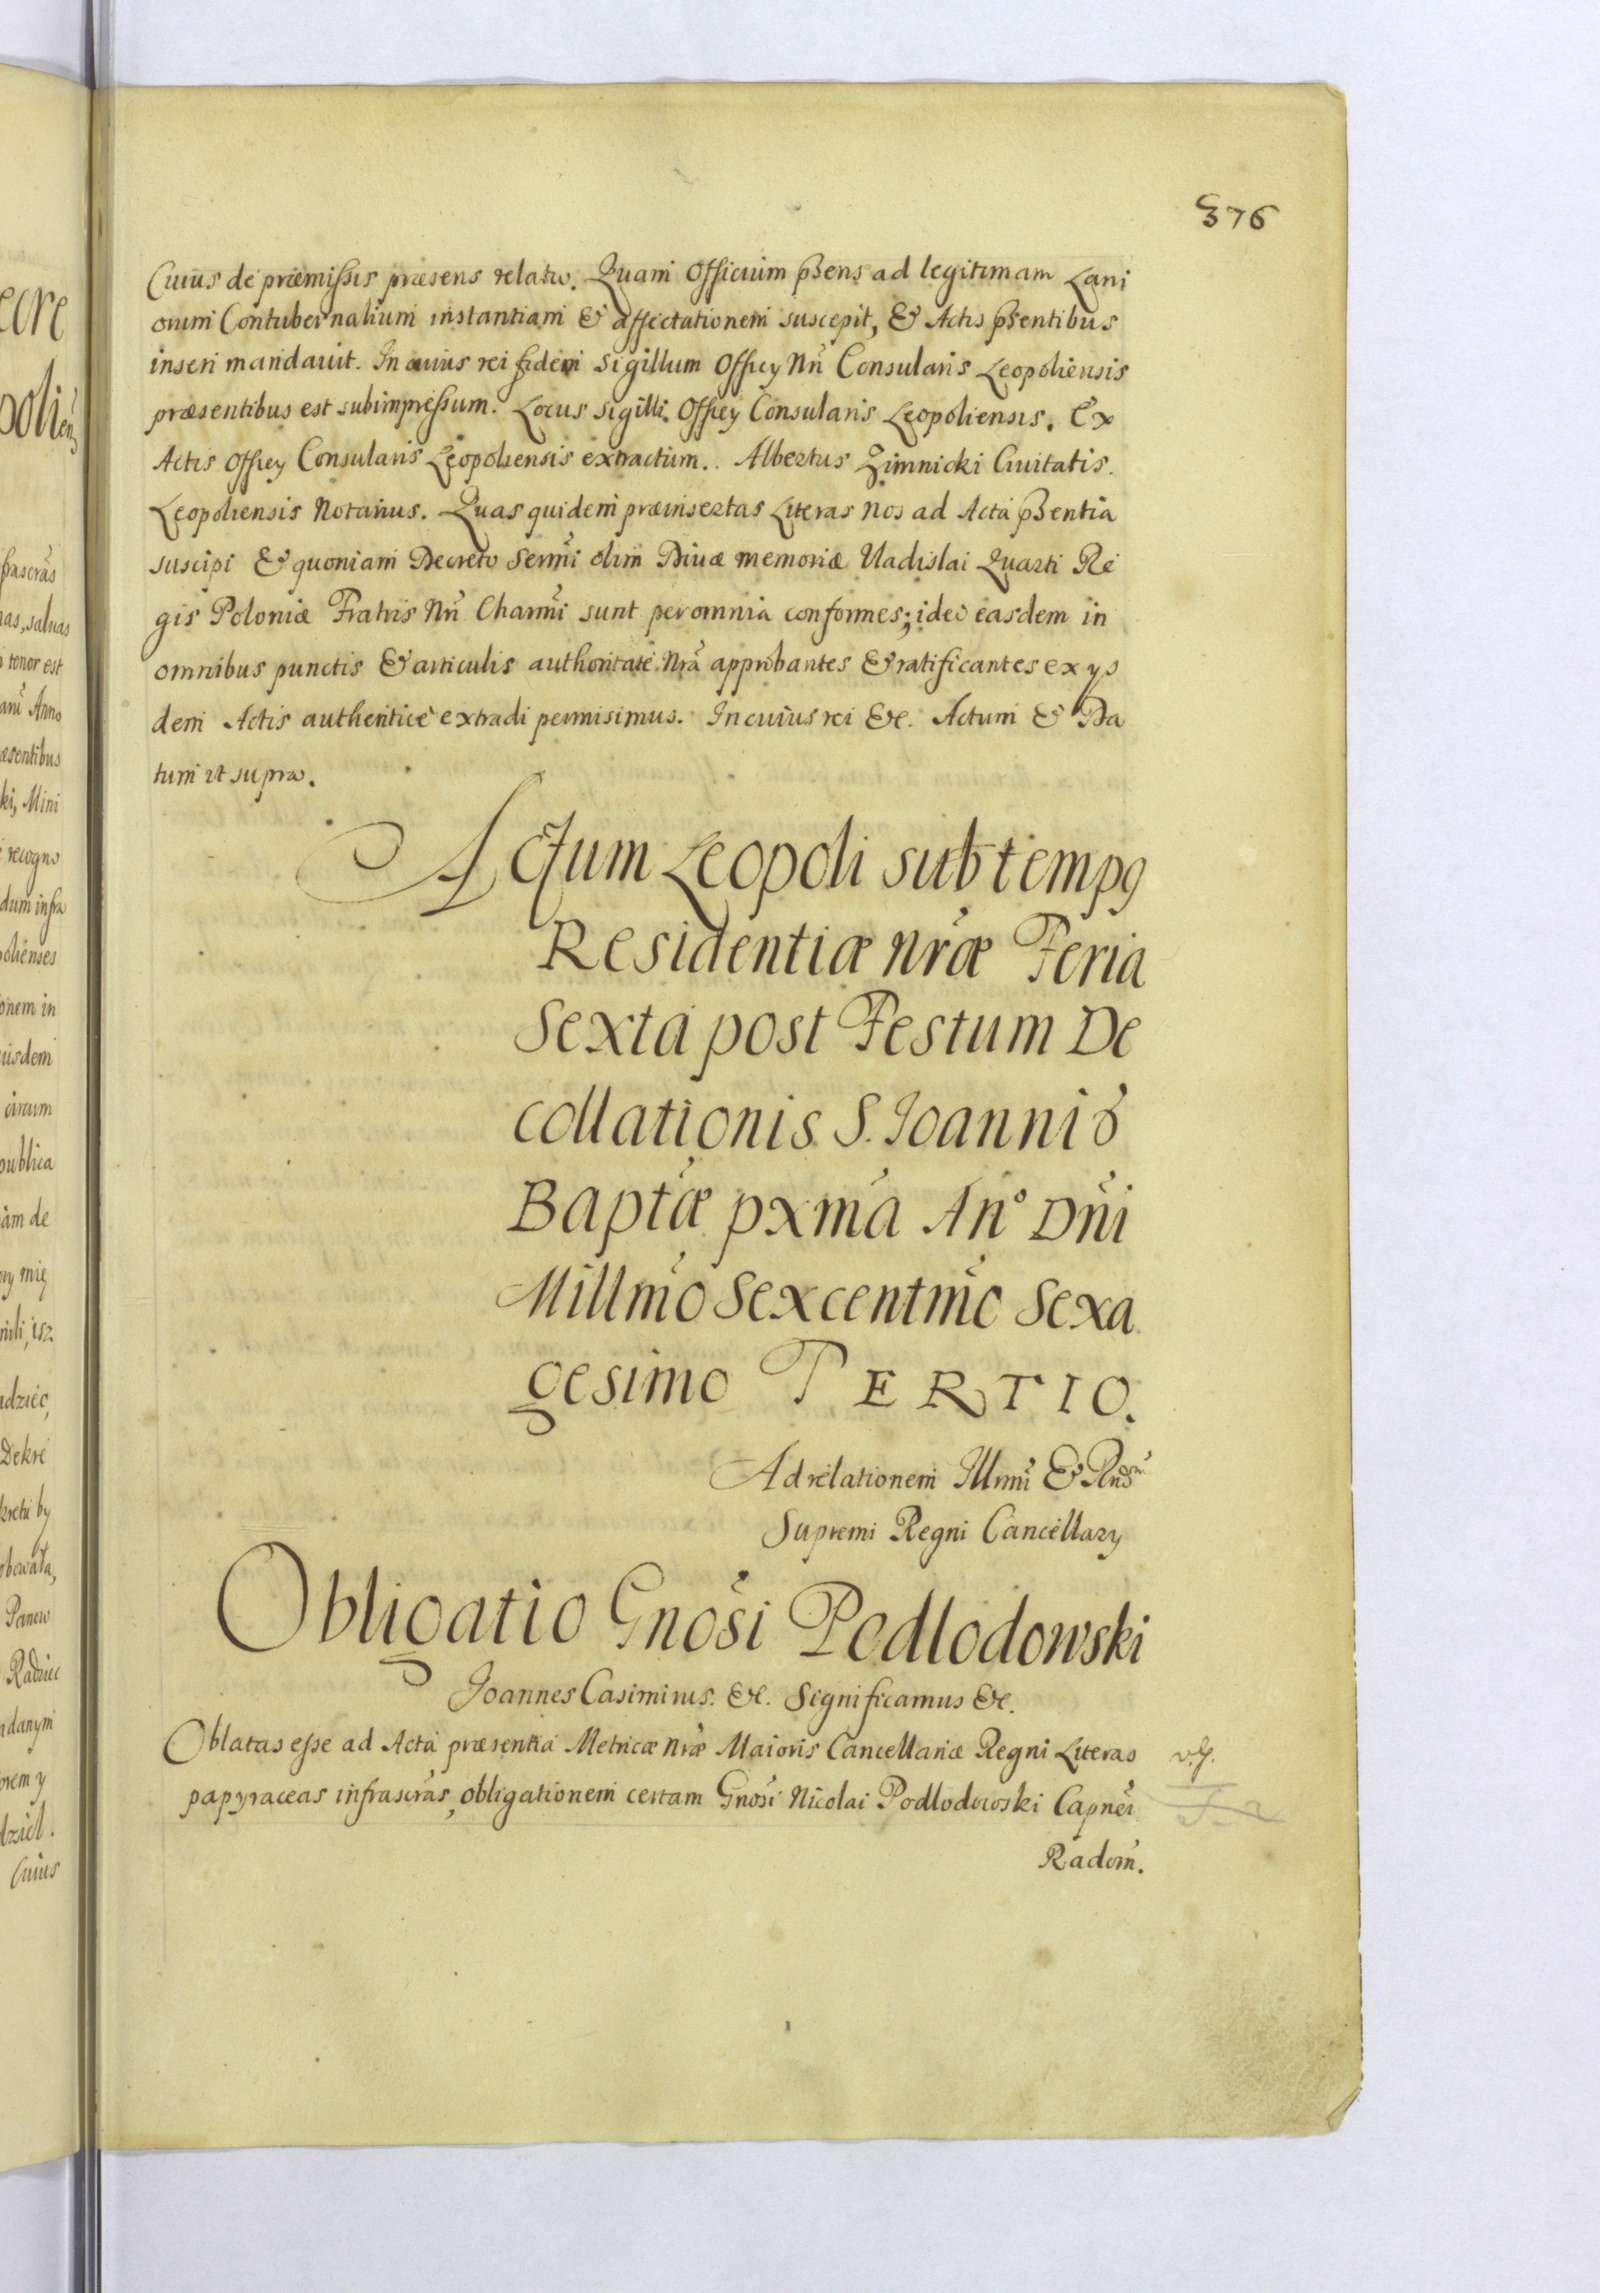 376
Cuius de præmissis præsens relatio. Quam Officium pñsens ad legitimam Lani
onum Contubernalium instantiam & affectationem suscepit, & Actis pñsentibus
inseri mandavit. In cuius rei fidem sigillum Officy Nr̃i Consularis Leopoliensis
præsentibus est subimpressum. Locus sigilli Officy Consularis Leopoliensis. Ex
Actis Officy Consularis Leopoliensis extractum. Albertus Zimnicki Civitatis
Leopoliensis Notarius. Quas quidem præinsertas Literas Nos ad Acta pñsentia
suscipi & quoniam Decreto Sermi olim Divæ memoriæ Vladislai Quarti Re
gis Poloniæ Fratris Nr̃i Charmi sunt per omnia conformes; ideo easdem in
omnibus punctis & articulis authoritate Nrã approbantes & ratificantes ex ys
dem Actis authentice extradi permisimus. In cuius rei &c. Actum & Da
tum ut supra.
Actum Leopoli sub temp9
Residentiæ nræ Feria
Sexta post Festum De
collationis S. Joannis
Baptæ pxma An° Dni
Millmo Sexcentmo Sexa
gesimo TERTIO.
Ad relationem Illmi & Rndsmi
Supremi Regni Cancellary
Obligatio Gnosi Podlodowski
Joannes Casimirus. &c. Significamus &c.
Oblatas esse ad Acta præsentia Metricæ Nræ Maioris Cancellariæ Regni Literas
papyraceas infrascras, obligationem certam Gnosi Nicolai Podlodowski Capnei
Radom.